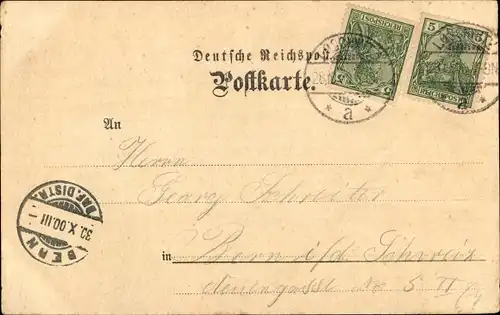 Deutsche Reichspost
Postkarte.
An
Herrn
Georg Schreiter
in Bern i/d Schweiz
No 5 II
5
REICHSPOST
5
REICHSPOST
a
a
BERN
30. X. 00. III
BRF. DISTR.